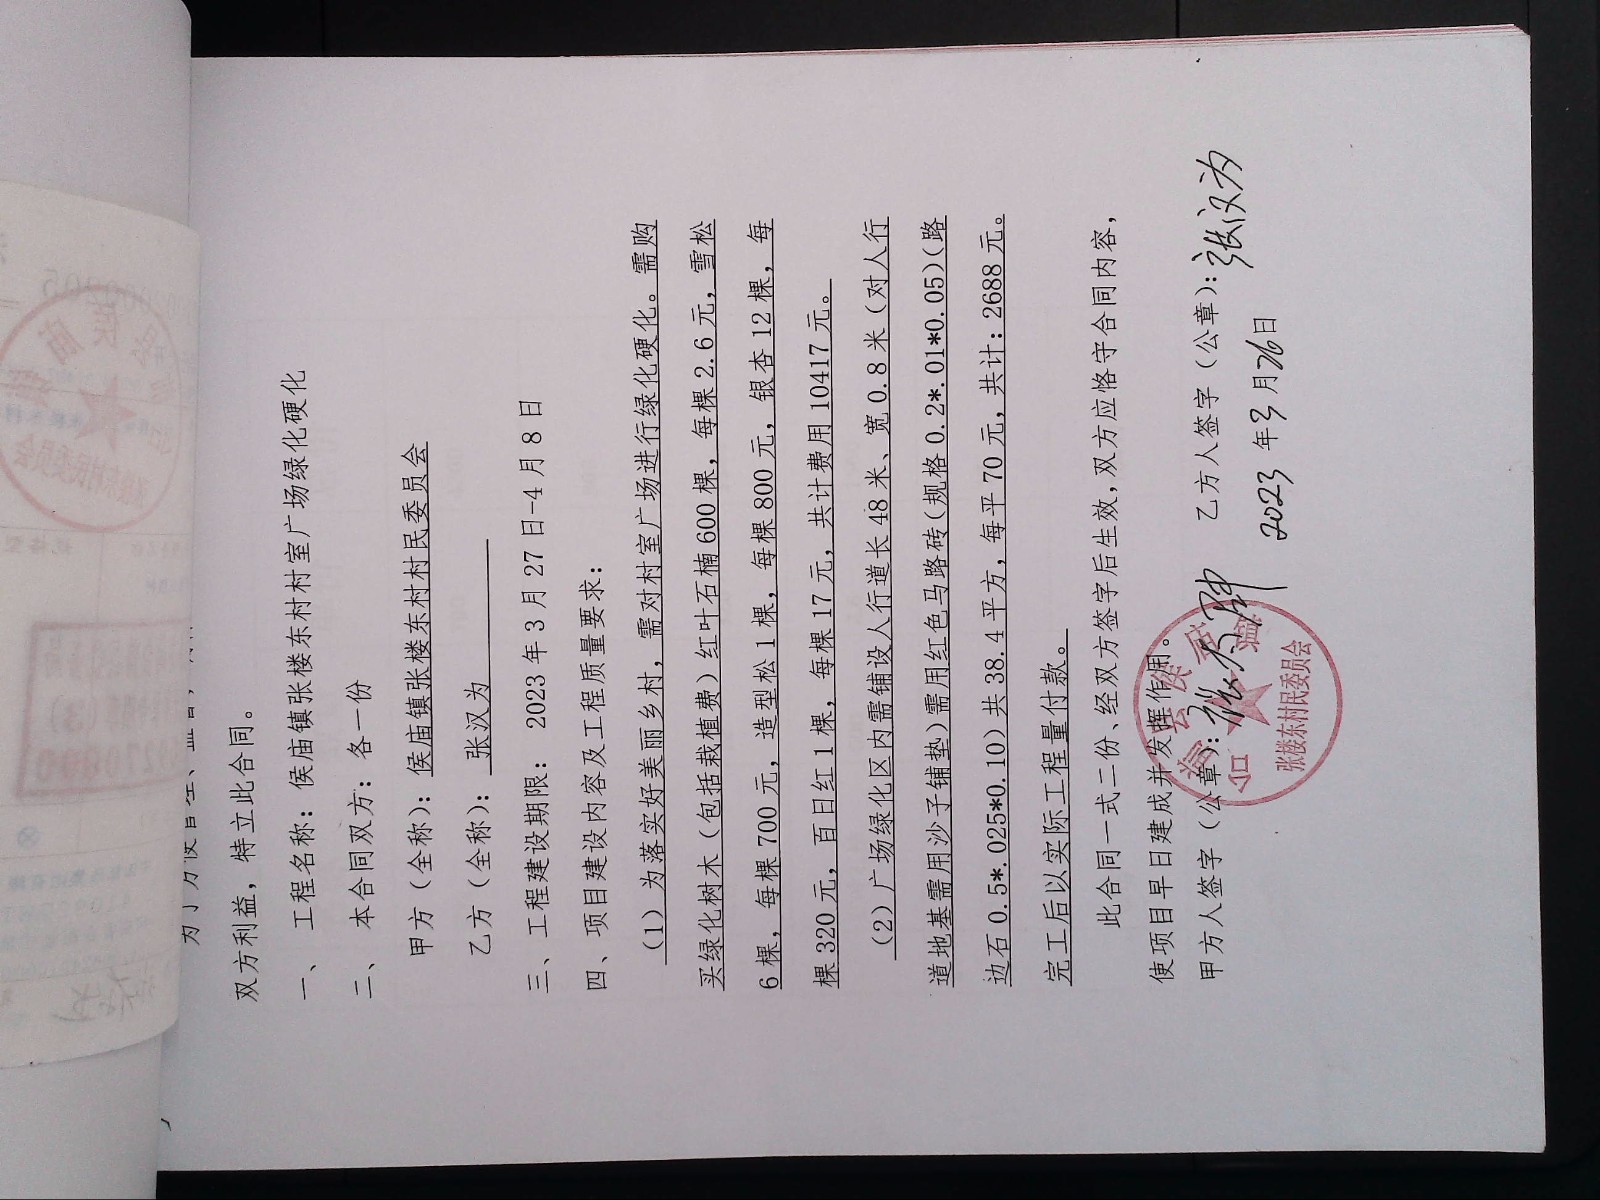 双方利益，特立此合同。
一、 工程名称：侯庙镇张楼东村村室广场绿化硬化
二、 本合同双方：各一份
甲方（全称）：侯庙镇张楼东村村民委员会
乙方（全称）： 张汉为
三、工程建设期限： 2023 年 3 月 27 日-4 月 8 日
四、项目建设内容及工程质量要求：
（1）为落实好美丽乡村，需对村室广场进行绿化硬化。需购
买绿化树木（包括栽植费）红叶石楠 600 棵，每棵 2.6 元，雪松
6 棵，每棵 700 元，造型松 1 棵，每棵 800 元，银杏 12 棵，每
棵 320 元，百日红 1 棵，每棵 17 元，共计费用 10417 元。
（2）广场绿化区内需铺设人行道长 48 米、宽 0.8 米（对人行
道地基需用沙子铺垫)需用红色马路砖(规格 0.2*.01*0.05)(路
边石 0.5*.025*0.10）共 38.4 平方，每平 70 元，共计：2688 元。
完工后以实际工程量付款。
此合同一式二份、经双方签字后生效,双方应恪守合同内容，
使项目早日建成并发挥作用。
甲方人签字（公章）： 乙方人签字（公章）：张汉为
2023 年 3 月 26 日
张楼东村民委员会